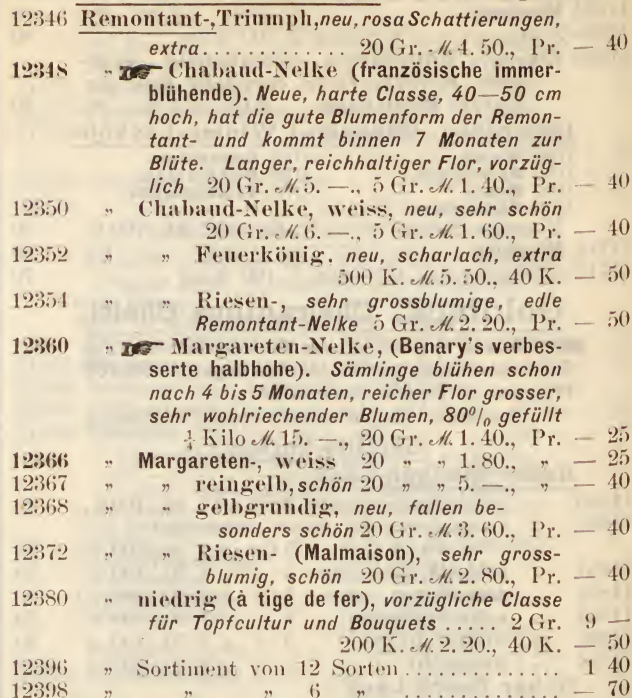 12346 Remontant-, Triumph, neu, rosa Schattierungen,
extra . . . . . . . . . . . . . 20 Gr. ℳ 4. 50., Pr. — 40
12348 „ ☞ Chabaud-Nelke (französische immer-
blühende). Neue, harte Classe, 40—50 cm
hoch, hat die gute Blumenform der Remon-
tant- und kommt binnen 7 Monaten zur
Blüte. Langer, reichhaltiger Flor, vorzüg-
lich 20 Gr. ℳ 5. —., 5 Gr. ℳ 1. 40., Pr. — 40
12350 „ Chabaud-Nelke, weiss, neu, sehr schön
20 Gr. ℳ 6. —., 5 Gr. ℳ 1. 60., Pr. — 40
12352 „ „ Feuerkönig, neu, scharlach, extra
500 K. ℳ 5. 50., 40 K. — 50
12354 „ „ Riesen-, sehr grossblumige, edle
Remontant-Nelke 5 Gr. ℳ 2. 20., Pr. — 50
12360 „ ☞ Margareten-Nelke, (Benary's verbes-
serte halbhohe). Sämlinge blühen schon
nach 4 bis 5 Monaten, reicher Flor grosser,
sehr wohlriechender Blumen, 80% gefüllt
¼ Kilo ℳ 15. —., 20 Gr. ℳ 1. 40., Pr. — 25
12366 „ Margareten-, weiss 20 „ „ 1. 80., „ — 25
12367 „ „ reingelb, schön 20 „ „ 5. —., „ — 40
12368 „ „ gelbgrundig, neu, fallen be-
sonders schön 20 Gr. ℳ 3. 60., Pr. — 40
12372 „ „ Riesen- (Malmaison), sehr gross-
blumig, schön 20 Gr. ℳ 2. 80., Pr. — 40
12380 „ niedrig (à tige de fer), vorzügliche Classe
für Topfcultur und Bouquets . . . . . 2 Gr. 9 —
200 K. ℳ 2. 20., 40 K. — 50
12396 „ Sortiment von 12 Sorten . . . . . . . . . . . . . . 1 40
12398 „ „ „ 6 „ . . . . . . . . . . . . . . — 70